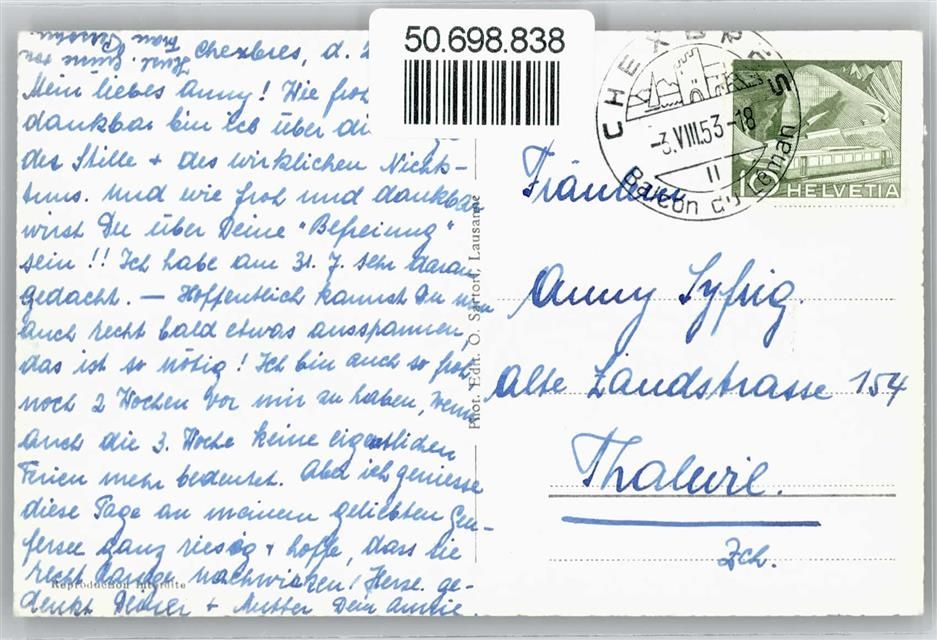 50.698.838
Chexbres, d. 2
Mein liebes Anny! Wie froh
dankbar bin ich über di
der Stille + des wirklichen Nichts-
tuns. Und wie froh und dankbar
wirst Du über Deine "Befreiung"
sein!! Ich habe am 31. 7. sehr daran
gedacht. — Hoffentlich kannst Du nun
auch recht bald etwas ausspannen,
das ist so nötig! Ich bin auch so froh,
noch 2 Wochen vor mir zu haben, wenn
auch die 3. Woche keine eigentlichen
Ferien mehr bedeutet. Aber ich geniesse
diese Tage an meinem geliebten Gen-
fersee ganz riesig + hoffe, dass sie
recht lange nachwirken! Herzl. ge-
denkt Deiner + Mutter Dein
Reproduction interdite
Phot. Edit. O. Sartori, Lausanne
CHEXBRES
-3.VIII.53-18
II
Balcon du Léman
10 HELVETIA
Fräulein
Anny Syfrig.
alte Landstrasse 154
Thalwil.
Zch.